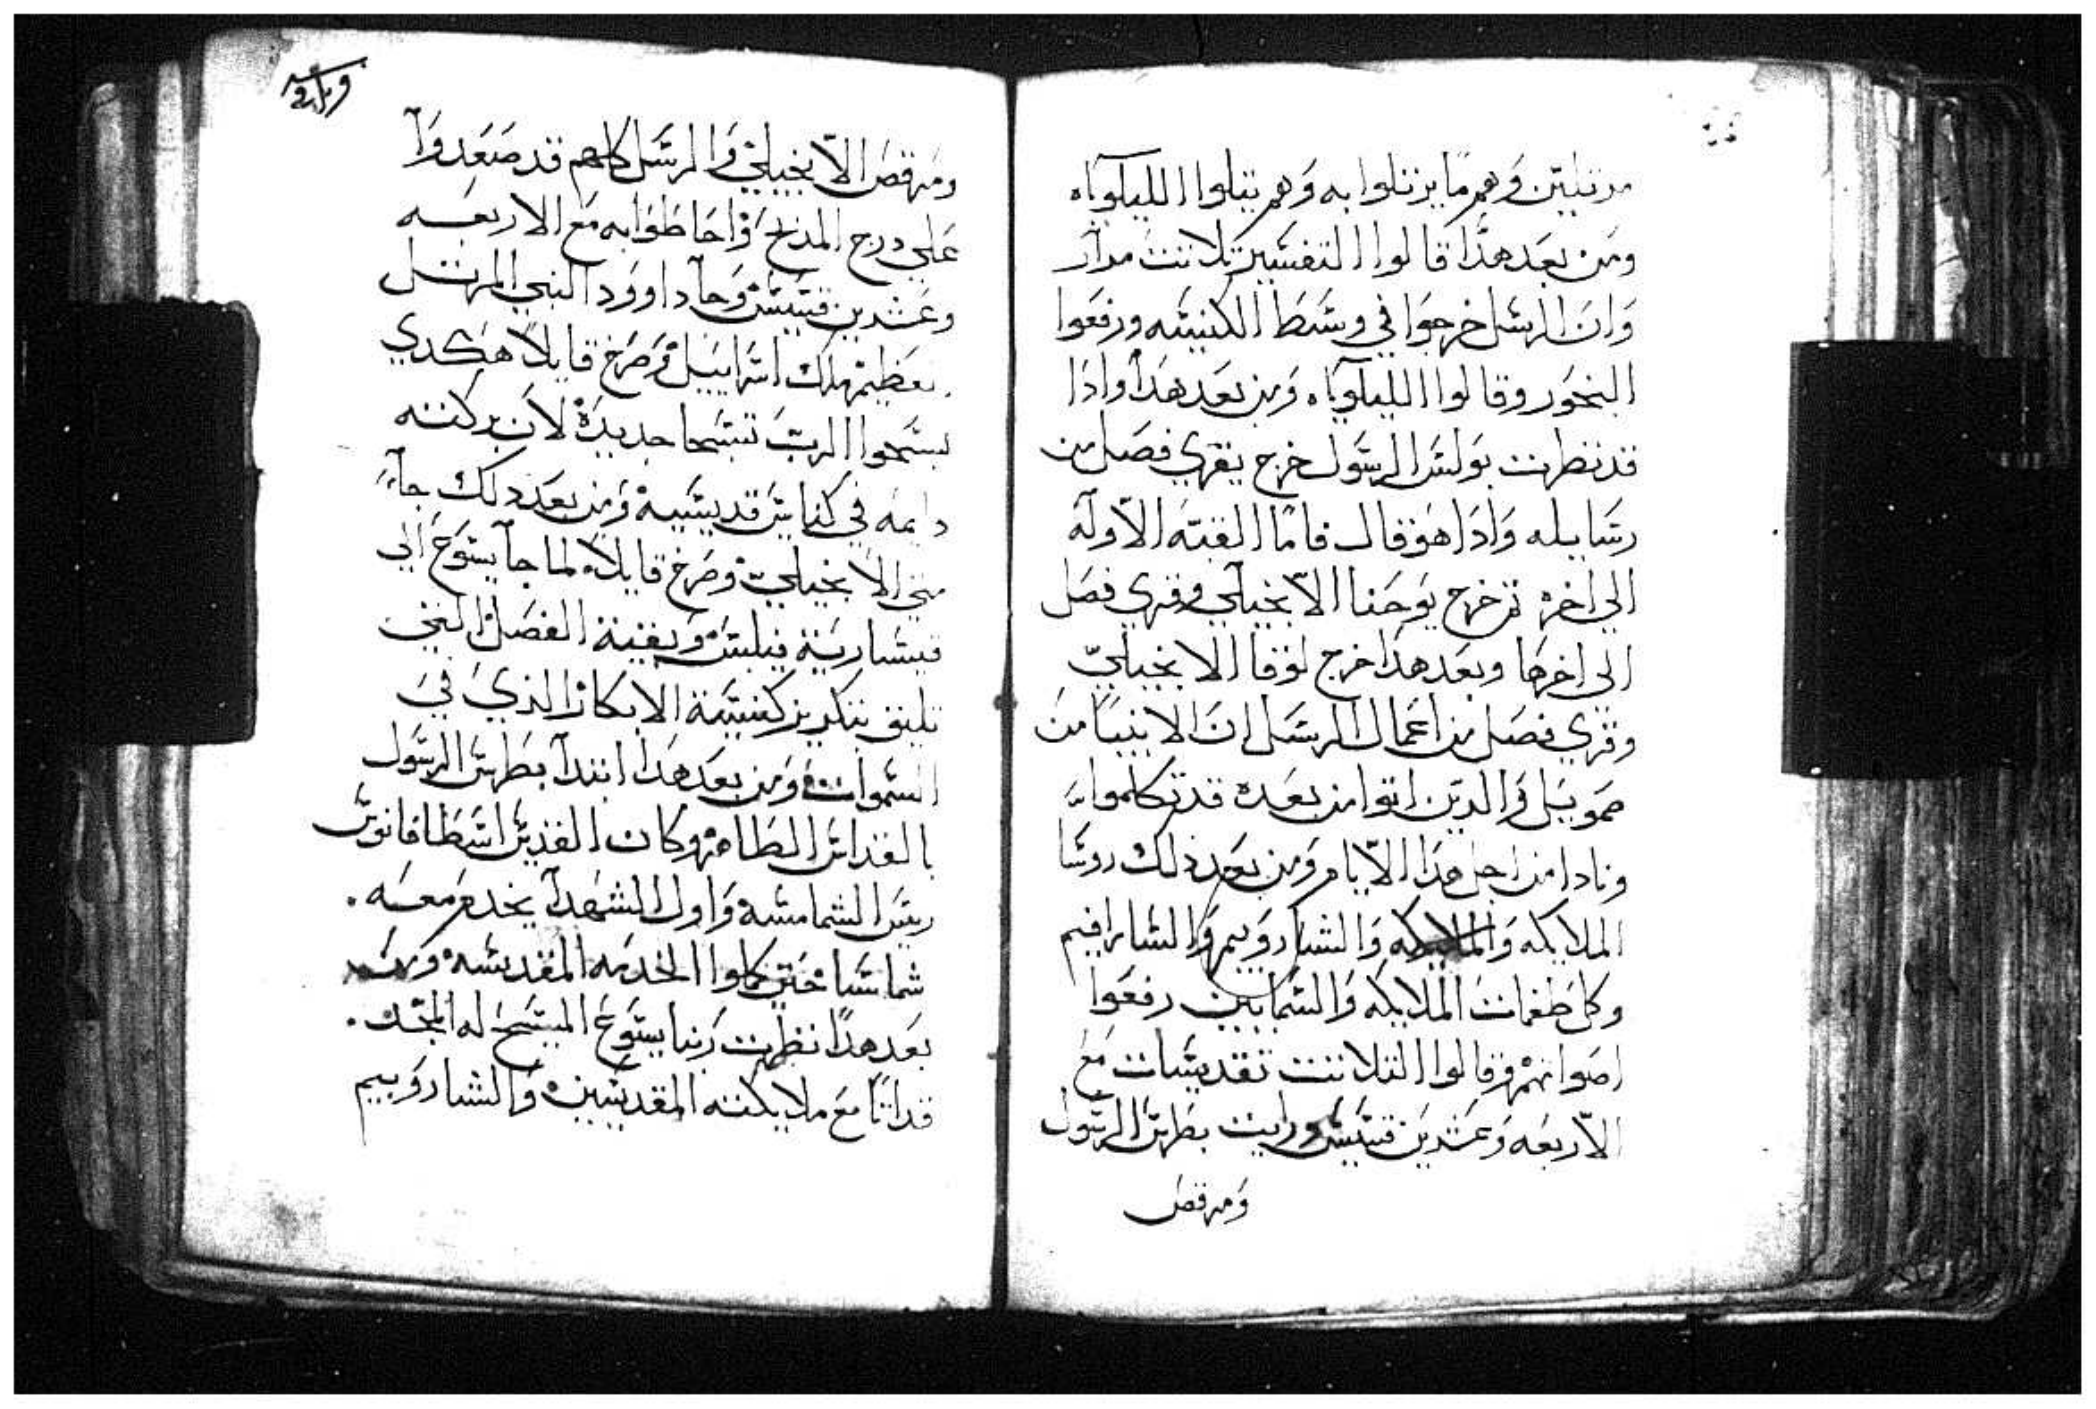 مرتليّن وَهم مَا يرتلوا به وَهم يتلوا الليلوياه
ومَن بَعَد هذا قالوا التفسير تلاتت مرار
وَانَ الرسل خرجوَا في وسَط الكنيسَه ورفعَوا
البخوَر وقالوا الليلوياه وَمن بعَد هَدا واذَا
قد نظرت بوَلسَ الرسَول خرج يقري فصَل من
رسَايله وَادَا هَوَ قال فامّا القتَه الاوله
الي اخره تم خرج يوَحَنا الانجيلي وقري فصَل
الي اخرهَا وبعَد هَدَا خرج لوَقا الانجيليّ
وقري فصَل من اعَمال الرسَل ان الانبيَا منَ
صَمويَل وَالديَن اتوا من بعَده قد تكلموا
ونادا من اجل هَدَا الايام وَمن بعَد ذلك روسَا
الملايكه وَالسَاروَبيم وَالسَارافيم
وكل طغمات الملايكه وَالسَمايين رفعَوا
اصَواتهم وقالوا التلاتت تقديسَات مَع
الاربعَه وَعَشرين قسَيسَ ورايت بطرسَ الرسَول
وَمرقصَ
ومَرقصَ الانجيلي وَالرسَل كلهم قد صَعَدوَا
عَلي درج المدبح وَاحَاطوَا به مَع الاربعَه
وعَشرين قسَيسَ وَجا داووَد النبي المرتل
بعَظيم ملك اسرَاييَل وَصرَخ قايلا هكدي
لبسَحوا الربَ تسَبَحا جديدَة لانَ بركته
دايمَه في كنايسَ قديسَيه وَمن بعَد دلك جاَء
متي الانجيلي وصرَخ قايلا لما جا يسَوَع الي
قيسَارية فيلبسَ وبَقية الفصَل الذي
تليق بتكريز كنيسَة الابكار الذي فيَ
السَموات وَمن بعَد هَدا ابتدا بطرسَ الرسَول
بالقداسَ الطاهر وكان القديسَ اسَطافانوسَ
ريسَ الشمامسَه وَاول الشهدا يخدم مَعَه
شماسَا حَتي كملوا الخدمَه المقدسَه وَمن
بعَد هدا نظرت رَبنا يسَوَع المسَيح له المجَد
قد اتا مَع ملايكته المقديسَين وَالسَاروَبيم